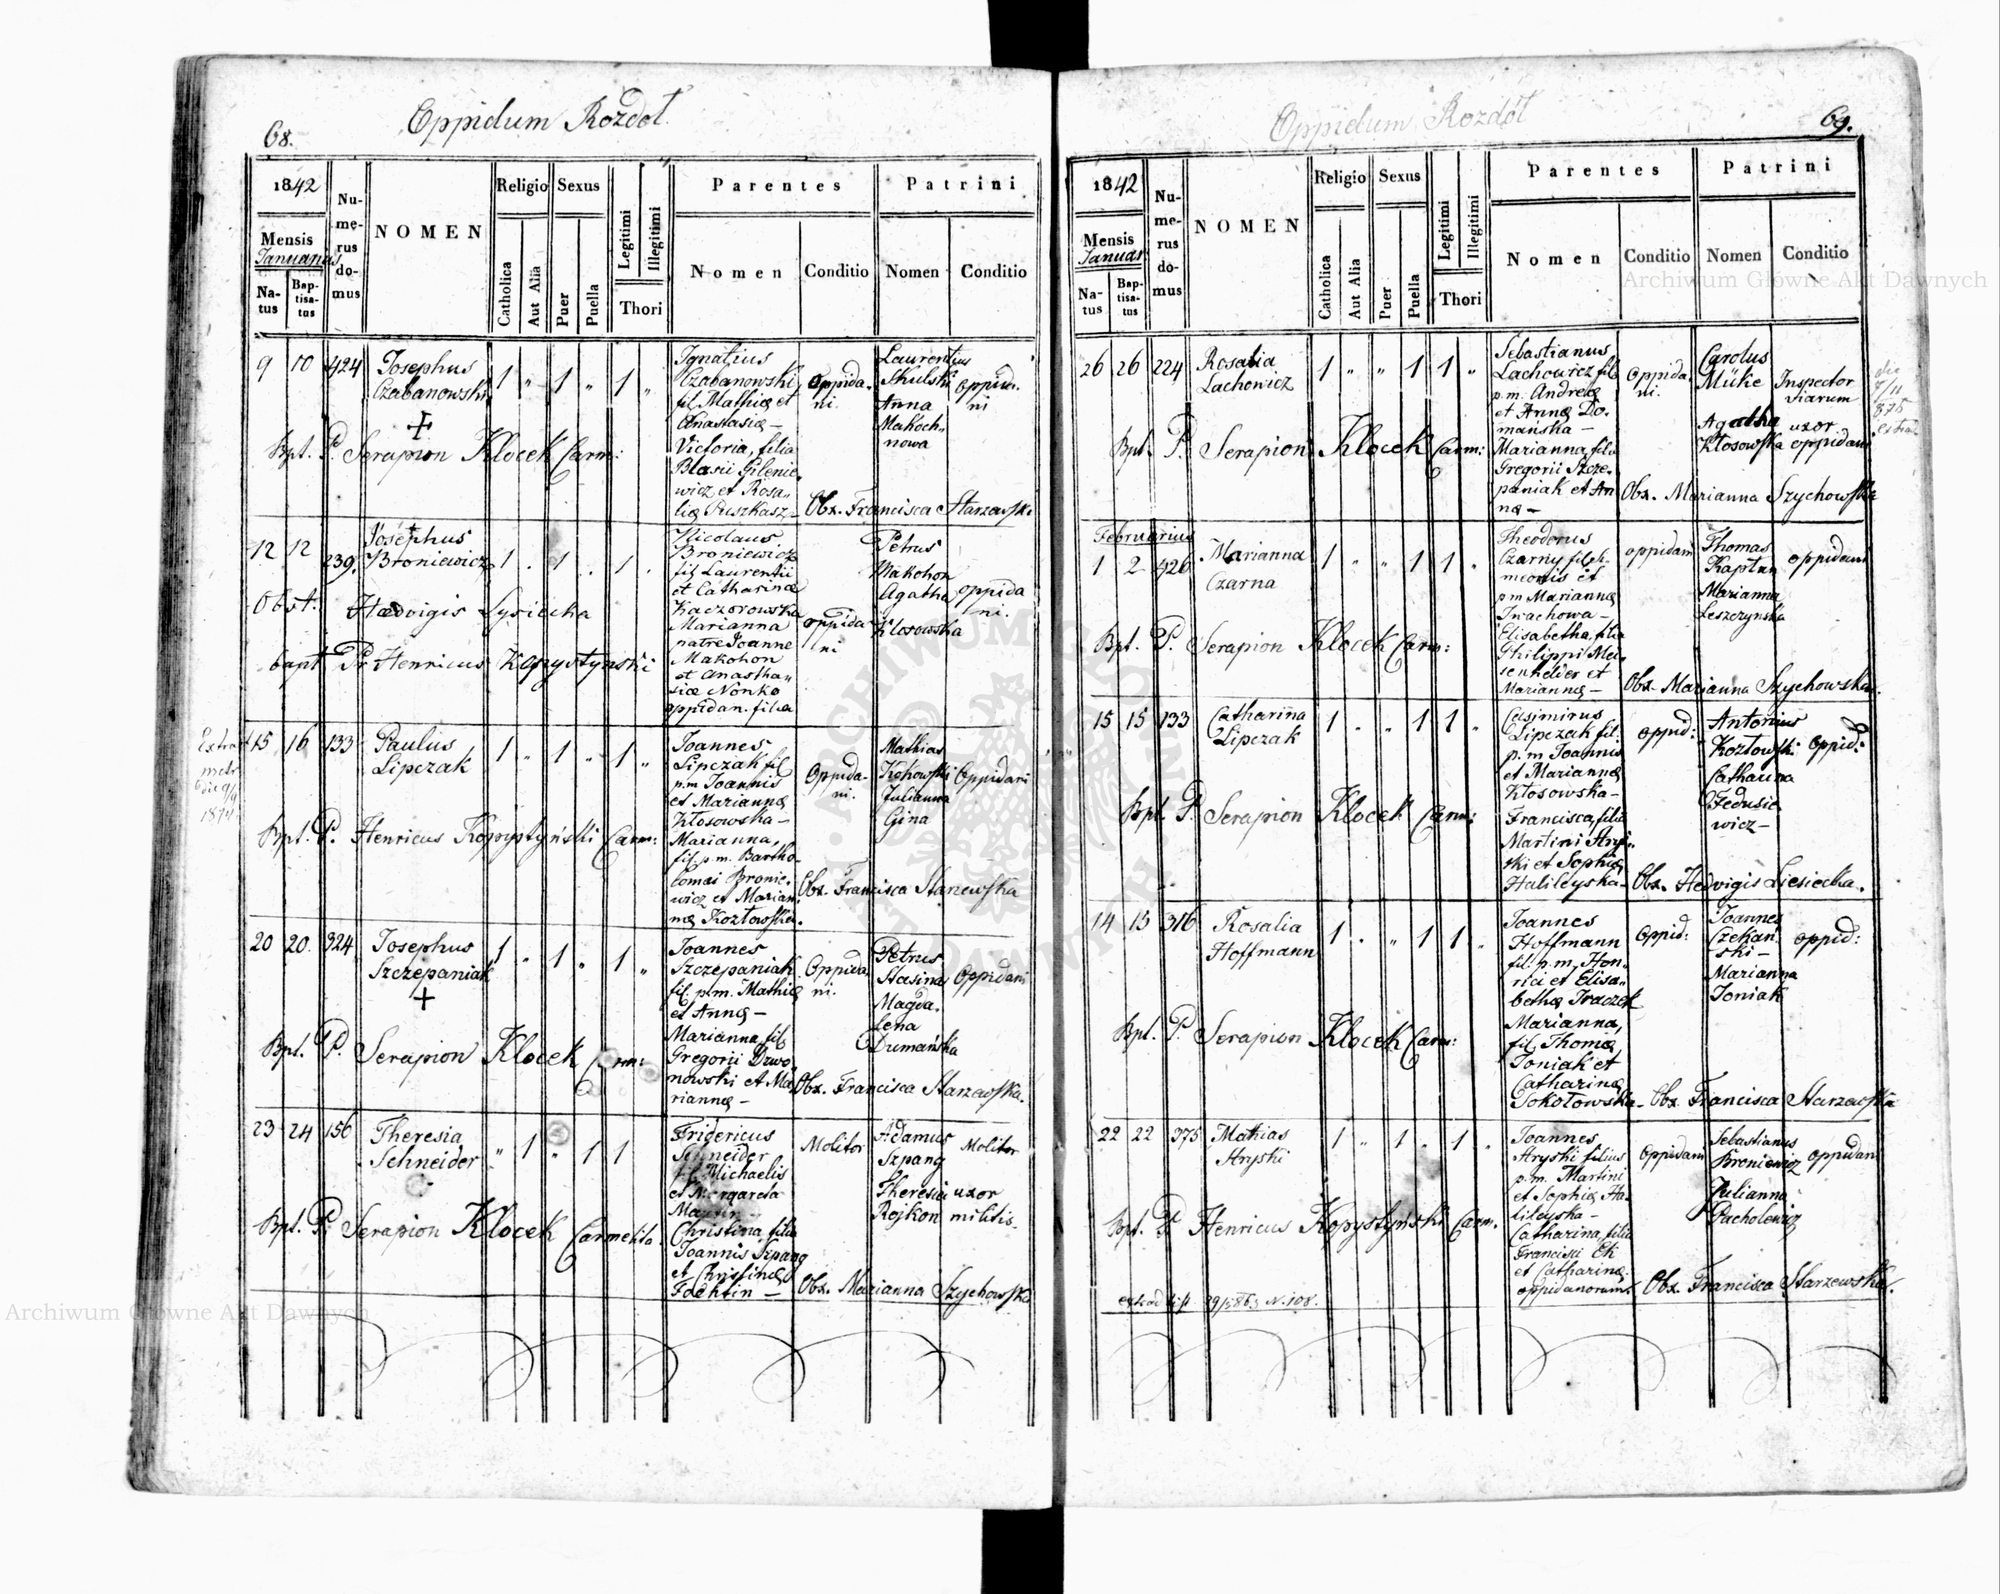 68.
Oppidum Rozdoł
1842
Mensis
Januarius
Na-
tus
Bap-
tisa-
tus
Nu-
me-
rus
do-
mus
NOMEN
Religio
Catholica
Aut Alia
Sexus
Puer
Puella
Legitimi
Illegitimi
Thori
Parentes
Nomen
Conditio
Patrini
Nomen
Conditio
9 10 424
Josephus
Czabanowski
1 " 1 " 1 "
Ignatius
Czabanowski
fil. Mathiæ et
Anastasiæ –
Victoria, filia
Blasii Gilenie-
wicz et Rosa-
liæ Puszkasz –
Oppida-
ni.
Laurentius
Skulski
Anna
Makoch-
nowa
Oppida-
ni
Bpt. P. Serapion Klocek Carm:
Obx. Francisca Starzewska
12 12 239.
Josephus
Broniewicz
1 . 1 . 1 .
Nicolaus
Broniewicz
fil. Laurentii
et Catharinæ
Kaczorowska
Marianna
patre Joanne
Makohon
et Anastha-
siæ Nonko
oppidan. filia
oppida-
ni
Petrus
Makohon
Agatha
Klosowska
oppida
ni.
Obst. Hedvigis Lysiecka
bapt Pr Henricus Kopystynski
15 16 133
Paulus
Lipczak
1 " 1 " 1 "
Joannes
Lipczak fil.
p.m Joannis
et Mariannæ
Kłosowska –
Marianna,
fil. p.m. Bartho-
lomæi Bronie-
wicz et Marian-
næ Kozłowska.
Oppida-
ni.
Mathias
Julianna
Gina
Oppidani
Bpt. P. Henricus Kopystyński Carm:
Obx. Francisca Starzewska
20 20. 324
Josephus
Szczepaniak
1 " 1 " 1 "
Joannes
Szczepaniak
fil. p.m. Mathiæ
et Annæ –
Marianna, fil.
Gregorii Dzwo-
nowski et Ma-
riannæ –
Oppida
ni.
Petrus
Stasina
Magda-
lena
Dumańska
Oppidani
Bpt. P. Serapion Klocek Carm:
Obx. Francisca Starzewska.
23 24 156
Theresia
Schneider
" 1 " 1 1
Fridericus
Schneider
fil. Michaelis
et Margareta
Martin –
Christina, filia
Joannis Szpang
et Christinæ
Fochtin –
Molitor
Adamus
Szpang
Theresia uxor
Rojkon militis.
Molitor
Bpt. P. Serapion Klocek Carmelita.
Obx. Marianna Szychowska
69.
Oppidum Rozdół
1842
Mensis
Januar
Na-
tus
Bap-
tisa-
tus
Nu-
me-
rus
do-
mus
NOMEN
Religio
Catholica
Aut Alia
Sexus
Puer
Puella
Legitimi
Illegitimi
Thori
Parentes
Nomen
Conditio
Patrini
Nomen
Conditio
26 26 224
Rosalia
Lachowicz
1 " " 1 1 "
Sebastianus
Lachowicz fil.
p.m. Andreæ
et Annæ Do-
mańska –
Marianna, filia
Gregorii Szcze-
paniak et An
næ –
Oppida-
ni.
Carolus
Müke
Agatha uxor
Kłosowska oppidani
Inspector
viarum
Bpt. P. Serapion Klocek Carm:
Obx. Marianna Szychowska
Februarius
1 2 426
Marianna
Czarna
1 " " 1 1 "
Theodorus
Czarny fil. Si-
meonis et
p.m Marianna
Iwachowa –
Elisabetha, filia
Philippi Mei-
senhelder et
Mariannæ –
oppidani
Thomas
Kaptan
Marianna
Leszczynska
oppidani
Bpt. P. Serapion Klocek Carm:
Obx. Marianna Szychowska.
15 15 133
Catharina
Lipczak
1 " " 1 1 "
Casimirus
Lipczak fil.
p.m Joannis
et Mariannæ
Kłosowska –
Francisca, filia
Martini Hry-
ski et Sophiæ
Halileyska –
oppid:
Antonius
Kozłowski
Catharina
Fedusie
wicz –
Oppid:
Bpt P. Serapion Klocek Carm:
Obx. Hedvigis Liesiecka.
14 15 316
Rosalia
Hoffmann
1 . " 1 1 "
Joannes
Hoffmann
fil. p.m. Hen-
rici et Elisa-
bethæ Traczek
Marianna,
fil. Thomæ
Toniak et
Catharinæ
Sokołowska –
Oppid:
Joannes
Czekań
ski –
Marianna
Toniak
oppid:
Bpt. P. Serapion Klocek Carm:
Obx Francisca Starzewska
22 22 375
Mathias
Hryski
1 " 1 . 1 "
Joannes
Hryski filius
p.m. Martini
et Sophiæ Ha-
lileyska –
Catharina, filia
Francisci Eli
et Catharinæ
oppidanorum.
Oppidani
Sebastianus
Broniewicz
Julianna
Pacholewicz
oppidani
Bpt. P Henricus Kopystyński Carm.
Obx. Francisca Starzewska.
Archiwum Główne Akt Dawnych
Archiwum Główne Akt Dawnych
ARCHIWUM GŁÓWNE AKT DAWNYCH